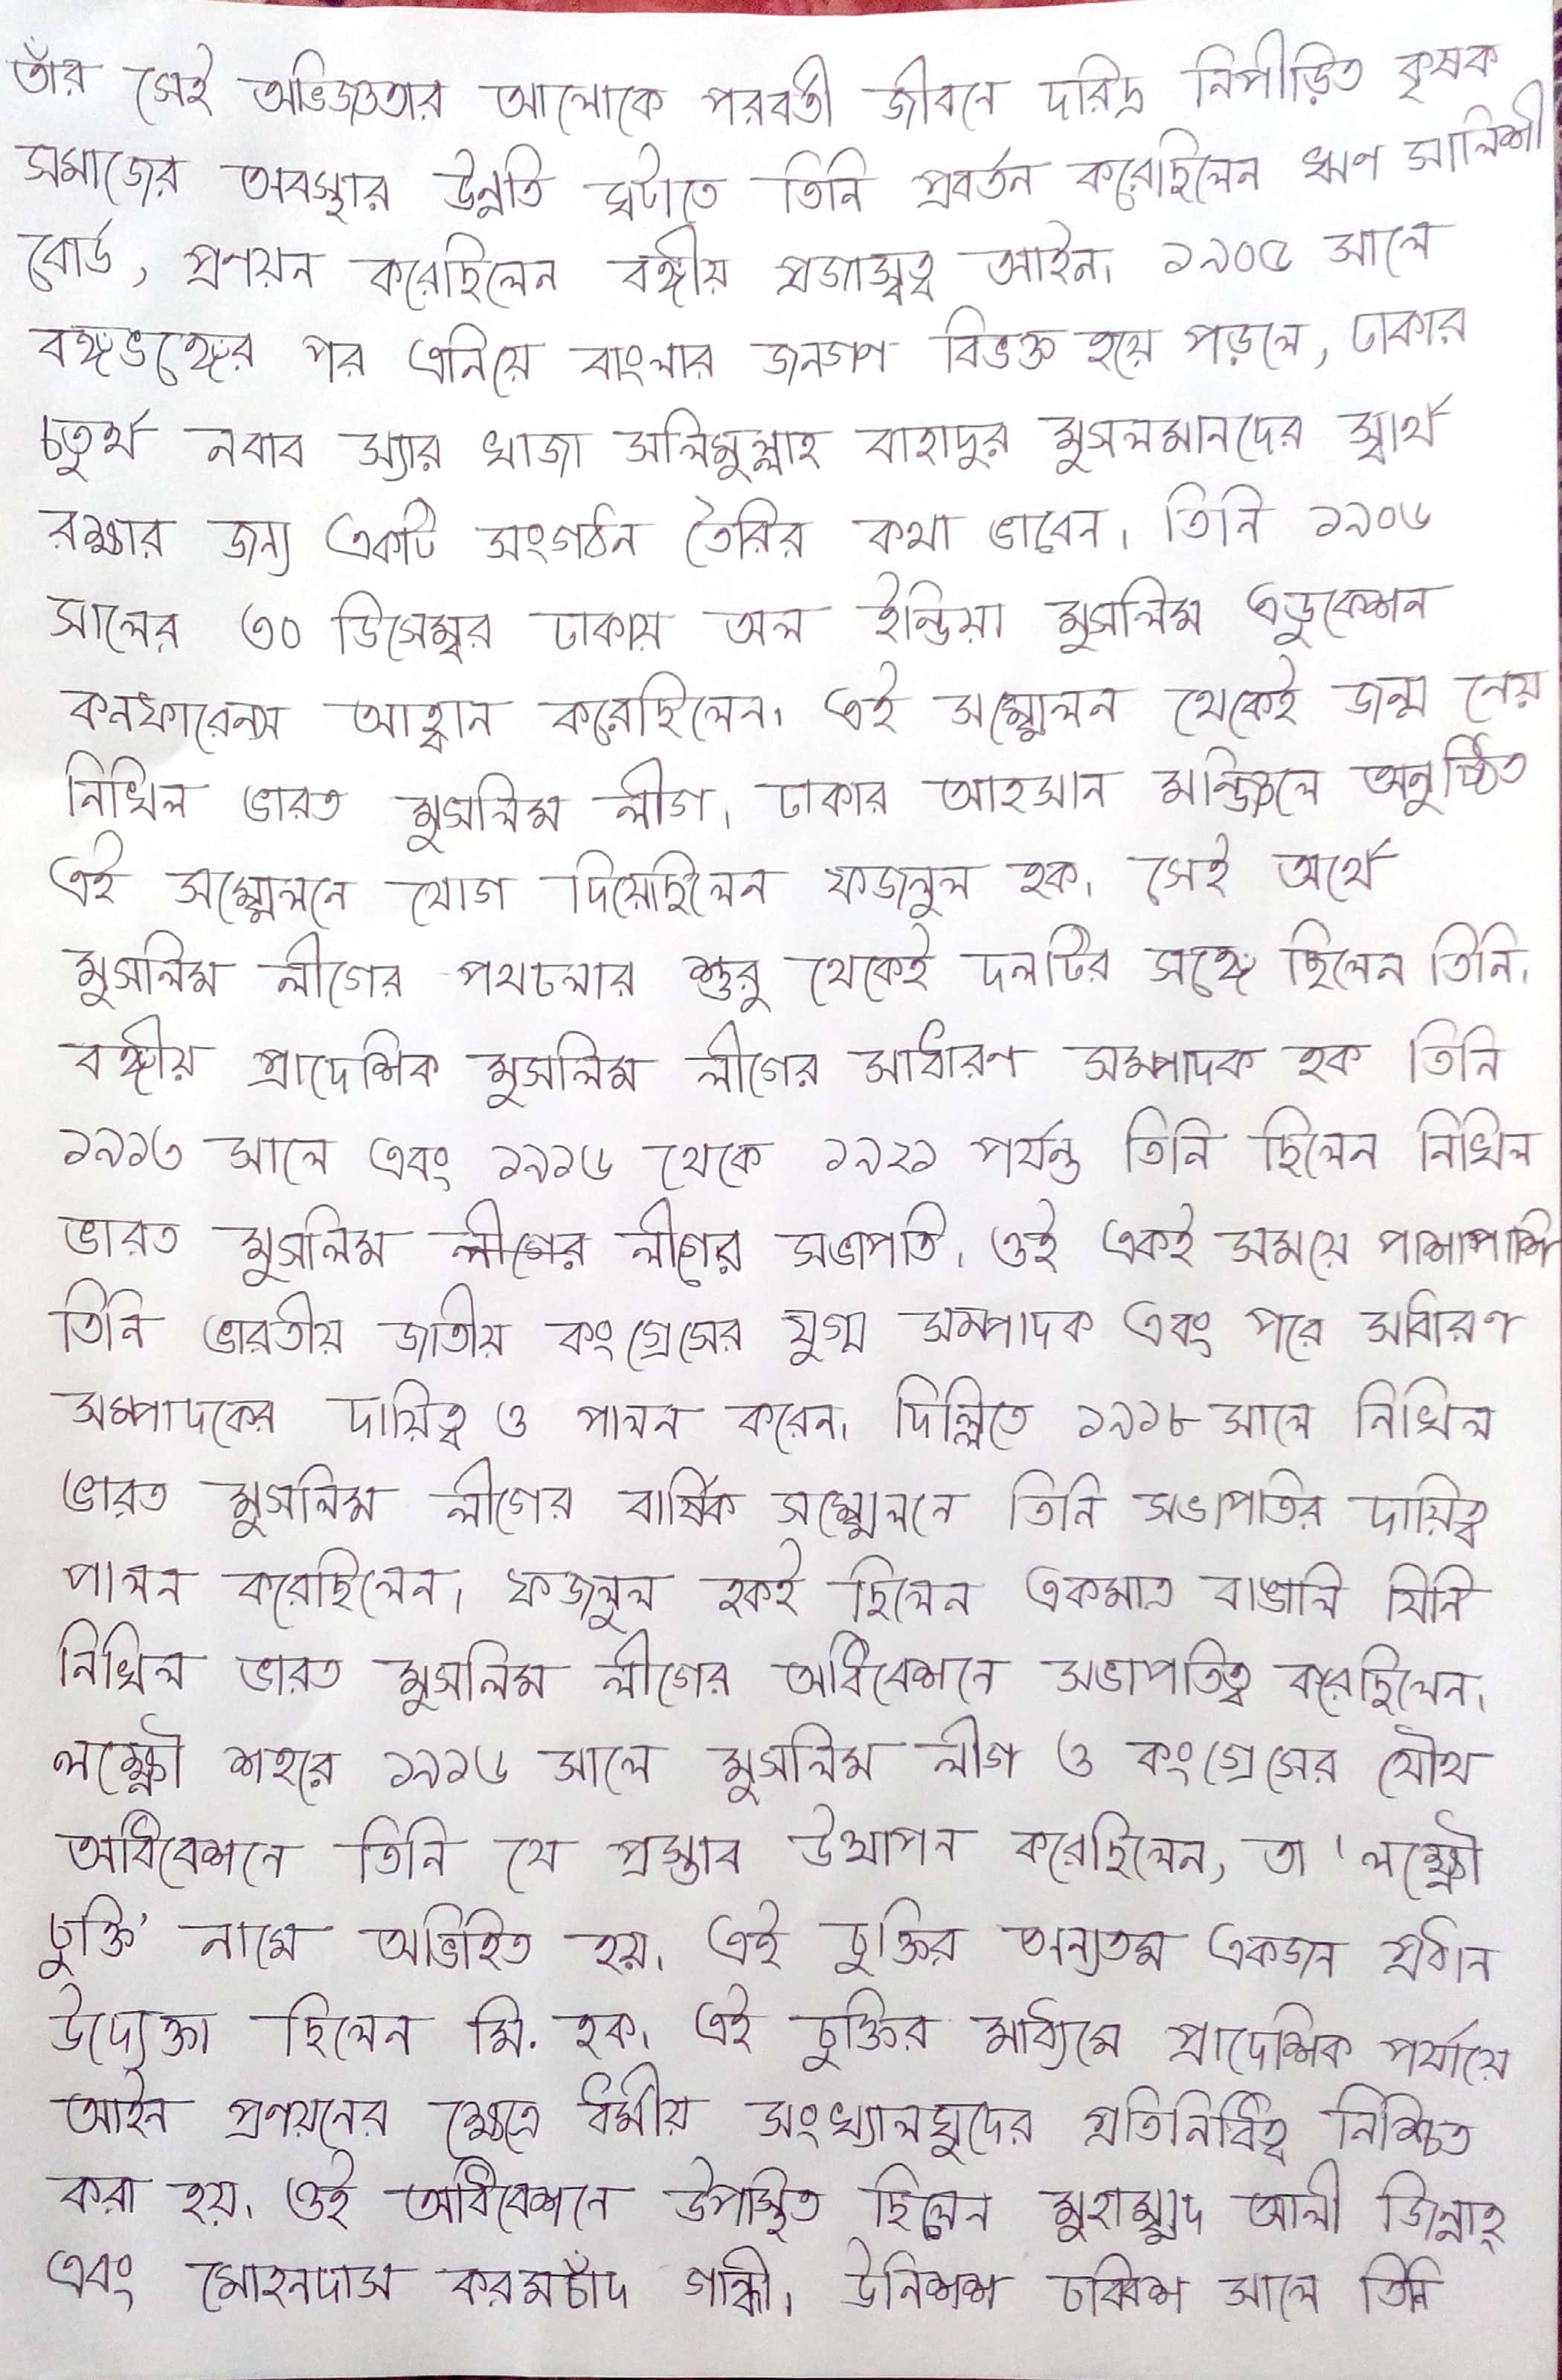 তাঁর সেই অভিজ্ঞতার আলোকে পরবর্তী জীবনে দরিদ্র নিপীড়িত কৃষক
সমাজের অবস্থার উন্নতি ঘটাতে তিনি প্রবর্তন করেছিলেন ঋণ সালিশী
বোর্ড, প্রণয়ন করেছিলেন বঙ্গীয় প্রজাস্বত্ব আইন। ১৯০৫ সালে
বঙ্গভঙ্গের পর এনিয়ে বাংলার জনগণ বিভক্ত হয়ে পড়লে, ঢাকার
চতুর্থ নবাব স্যার খাজা সলিমুল্লাহ বাহাদুর মুসলমানদের স্বার্থ
রক্ষার জন্য একটি সংগঠন তৈরির কথা ভাবেন। তিনি ১৯০৬
সালের ৩০ ডিসেম্বর ঢাকায় অল ইন্ডিয়া মুসলিম এডুকেশন
কনফারেন্স আহ্বান করেছিলেন। এই সম্মেলন থেকেই জন্ম নেয়
নিখিল ভারত মুসলিম লীগ। ঢাকার আহসান মঞ্জিলে অনুষ্ঠিত
এই সম্মেলনে যোগ দিয়েছিলেন ফজলুল হক। সেই অর্থে
মুসলিম লীগের পথচলার শুরু থেকেই দলটির সঙ্গে ছিলেন তিনি।
বঙ্গীয় প্রাদেশিক মুসলিম লীগের সাধারণ সম্পাদক হক তিনি
১৯১৩ সালে এবং ১৯১৬ থেকে ১৯২১ পর্যন্ত তিনি ছিলেন নিখিল
ভারত মুসলিম লীগের লীগের সভাপতি। ওই একই সময়ে পাশাপাশি
তিনি ভারতীয় জাতীয় কংগ্রেসের যুগ্ম সম্পাদক এবং পরে সাধারণ
সম্পাদকের দায়িত্ব ও পালন করেন। দিল্লিতে ১৯১৮ সালে নিখিল
ভারত মুসলিম লীগের বার্ষিক সম্মেলনে তিনি সভাপতির দায়িত্ব
পালন করেছিলেন। ফজলুল হকই ছিলেন একমাত্র বাঙালি যিনি
নিখিল ভারত মুসলিম লীগের অধিবেশনে সভাপতিত্ব করেছিলেন।
লক্ষ্ণৌ শহরে ১৯১৬ সালে মুসলিম লীগ ও কংগ্রেসের যৌথ
অধিবেশনে তিনি যে প্রস্তাব উত্থাপন করেছিলেন, তা 'লক্ষ্ণৌ
চুক্তি' নামে অভিহিত হয়। এই চুক্তির অন্যতম একজন প্রধান
উদ্যেক্তা ছিলেন মি. হক। এই চুক্তির মাধ্যমে প্রাদেশিক পর্যায়ে
আইন প্রণয়নের ক্ষেত্রে ধর্মীয় সংখ্যালঘুদের প্রতিনিধিত্ব নিশ্চিত
করা হয়। ওই অধিবেশনে উপস্থিত ছিলেন মুহাম্মদ আলী জিন্নাহ্
এবং মোহনদাস করমচাঁদ গান্ধী। উনিশশ চব্বিশ সালে তিনি